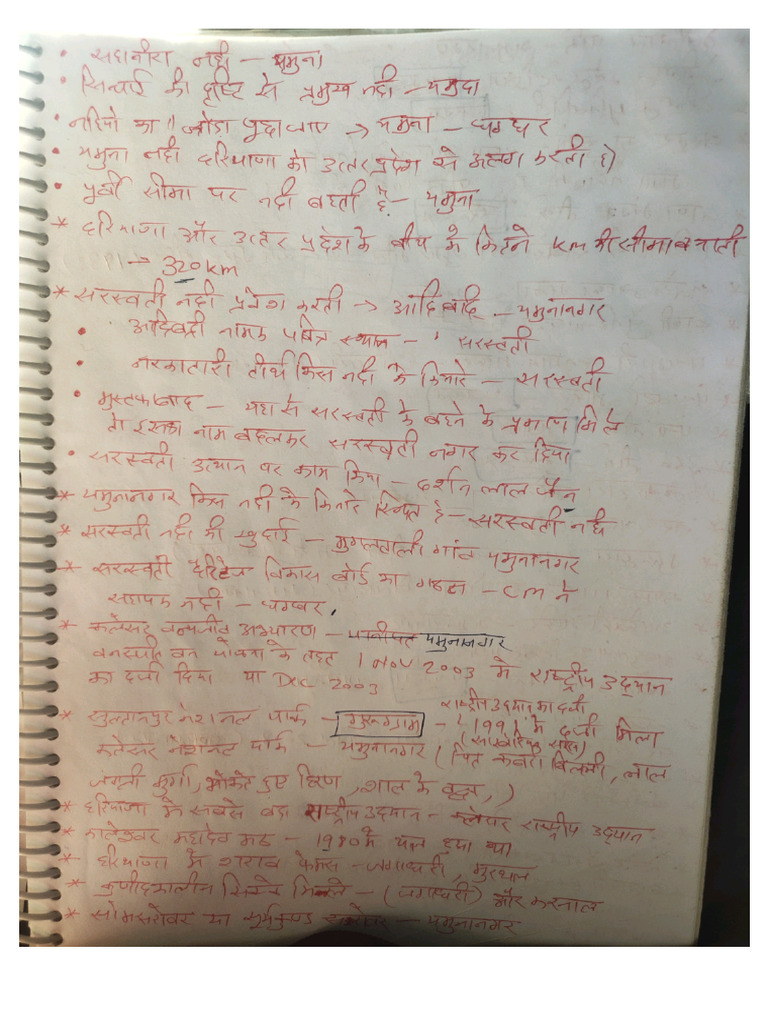 • सदानीरा नदी – यमुना
• सिंचाई की दृष्टि से प्रमुख नदी – यमुना
• नदियो का जोडा पूछा जाए → यमुना – घग्घर
• यमुना नदी हरियाणा को उत्तर प्रदेश से अलग करती है
• पूर्वी सीमा पर नदी बहती है – यमुना
* हरियाणा और उत्तर प्रदेश के बीच मे कितने km की सीमा बनाती
→ 320km
* सरस्वती नदी प्रवेश करती → आदिबद्रि – यमुनानगर
• आदिबद्री नामक पवित्र स्थान – सरस्वती
• नरकातारी तीर्थ किस नदी के किनारे – सरस्वती
• मुस्तफाबाद – यहा से सरस्वती के बहने के प्रमाण मिले
तो इसका नाम बदलकर सरस्वती नगर कर दिया
• सरस्वती उत्थान पर काम किया – दर्शन लाल जैन
* यमुनानगर किस नदी के किनारे स्थित है – सरस्वती नदी
* सरस्वती नदी की खुदाई – मुगलवाली गांव यमुनानगर
* सरस्वती हैरिटेज विकास बोर्ड का गठन – CM ने
सहायक नदी – घग्घर
* कलेसर वन्यजीव अभ्यारण – यमुनानगर
वन योजना के तहत 1 NOV 2003 मे राष्ट्रीय उद्यान
का दर्जा दिया या DEC 2003
राष्ट्रीय उद्यान का दर्जा
* सुल्तानपुर नेशनल पार्क – गुरूग्राम – 1991 मे दर्जा मिला
कलेसर नेशनल पार्क – यमुनानगर ( बिल्ली, लाल
जंगली मुर्गा, भोंकते हुए हिरण, शाल के वृक्ष,)
* हरियाणा मे सबसे बडा राष्ट्रीय उद्यान – कलेसर राष्ट्रीय उद्यान
* कालेश्वर महादेव मठ – 1980 मे हुआ था
* हरियाणा मे शराब फेमस – जगाधरी, मुरथल
* कुणीदकालीन सिक्के मिले – (जगाधरी) और करनाल
* सोमसरोवर या सूर्यकुण्ड सरोवर – यमुनानगर